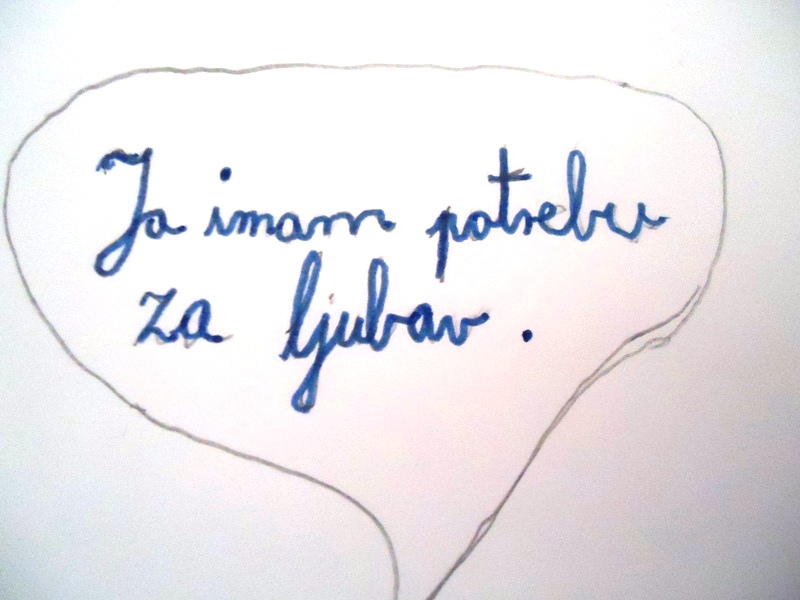 Ja imam potrebu
za ljubav .